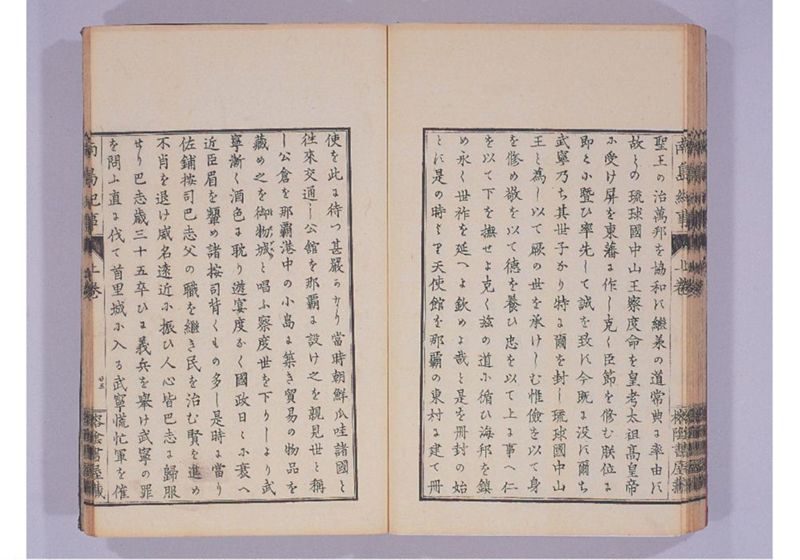 聖王の治萬邦を協和に繼承の道常典に率由に
故との琉球國中山王察度命を皇考太祖髙皇帝
に受け屏を東藩に作し克く臣節を修む朕位に
即と小曁ひ率先して誠を致に今既に没に爾ち
武寧乃ち其世子たり特に爾を封し琉球國中山
王と爲し以て厥の世を承けしむ惟儉を以て身
を修め敬を以て德を養ひ忠を以て上に事へ仁
を以て下を撫せよ克く玆の道に循ひ海邦を鎮
め永く世祚を延へよ欽めよ哉と是を冊封の始
とに是の時より天使館を那覇の東村に建て冊
使を此に待つ甚嚴なり當時朝鮮爪哇諸國と
徃來交通し公館を那覇に設け之を親見世と稱
し公倉を那覇港中の小島に築き貿易の物品を
藏め之を御物城と唱ふ察度世を下りしより武
寧漸く酒色に耽り遊宴度なく國政日に衰へ
近臣眉を顰め諸按司背くもの多し是時に當り
佐鋪按司巴志父の職を繼き民を治む賢を進め
不肖を退け威名遠近に振ひ人心皆巴志に歸服
せり巴志歳三十五卒ひに義兵を擧け武寧の罪
を問ふ直に伐て首里城に入る武寧慌忙軍を催
南島紀事
上巻
廿三